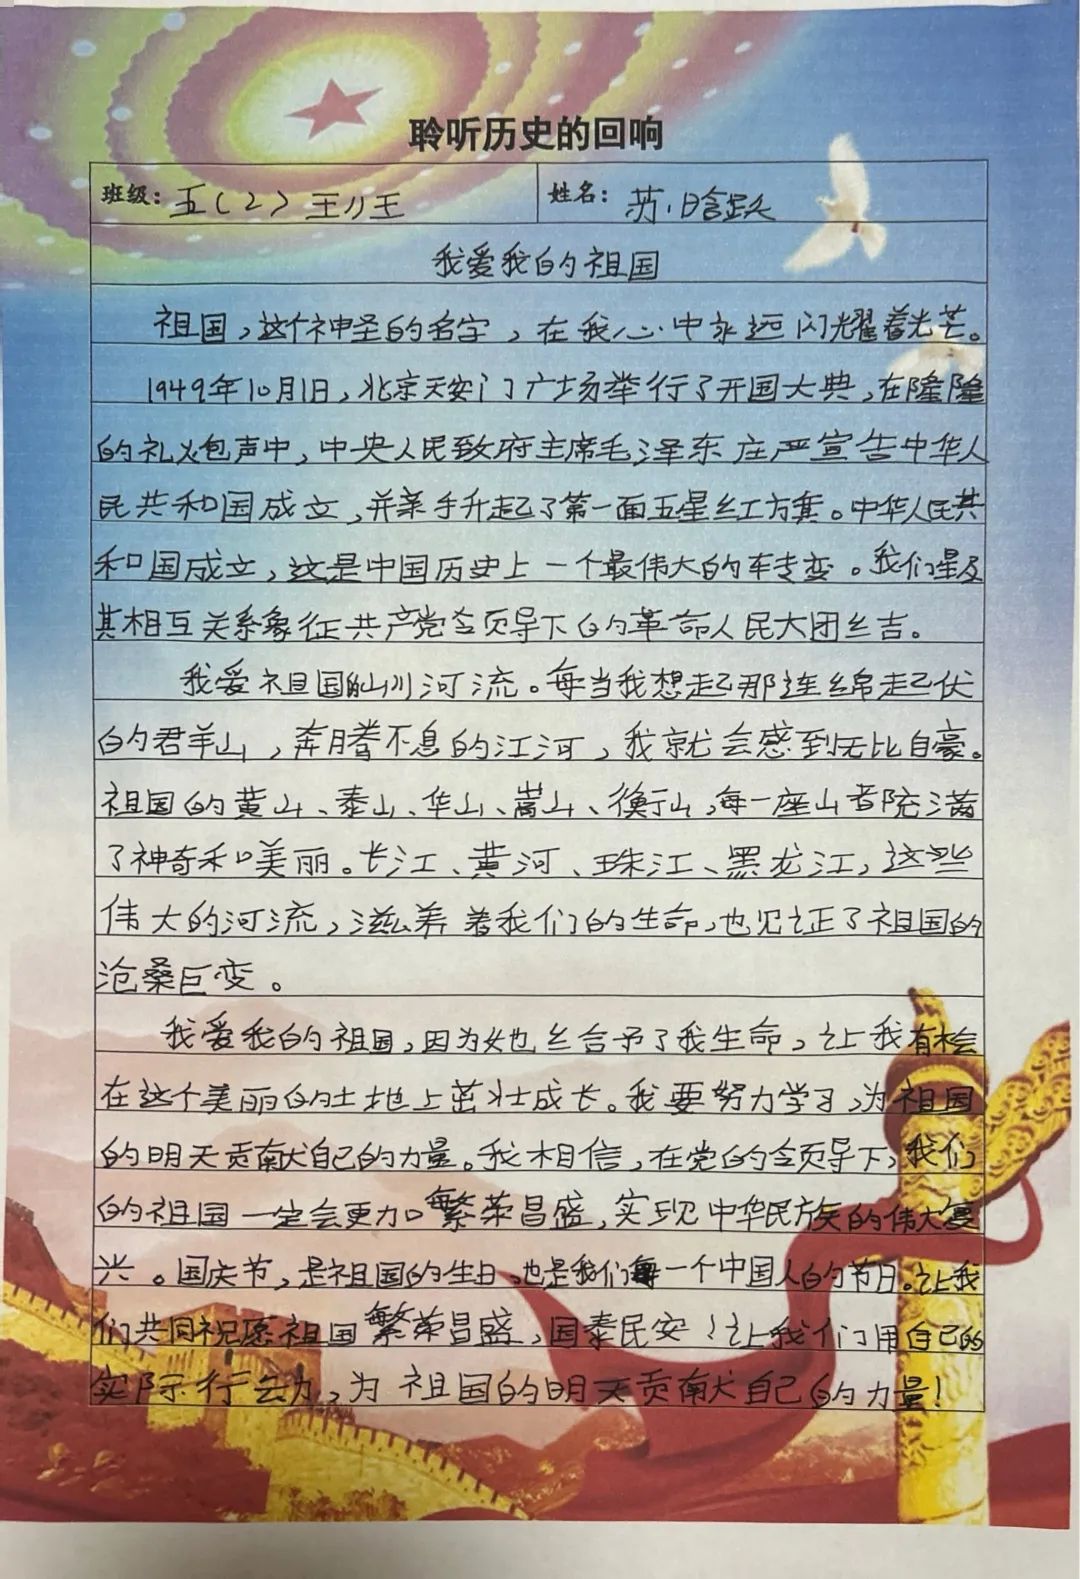 聆听历史的回响
班级：五（2）王小王 姓名：苏晗跃
我爱我的祖国
祖国，这个神圣的名字，在我心中永远闪耀着光芒。
1949年10月1日，北京天安门广场举行了开国大典，在隆隆
的礼炮声中，中央人民政府主席毛泽东庄严宣告中华人
民共和国成立，并亲手升起了第一面五星红旗。中华人民共
和国成立，这是中国历史上一个最伟大的转变。我们星及
其相互关系象征共产党领导下的革命人民大团结。
我爱祖国的山川河流。每当我想起那连绵起伏
的群山，奔腾不息的江河，我就会感到无比自豪。
祖国的黄山、泰山、华山、嵩山、衡山，每一座山都充满
了神奇和美丽。长江、黄河、珠江、黑龙江，这些
伟大的河流，滋养着我们的生命，也见证了祖国的
沧桑巨变。
我爱我的祖国，因为她给予了我生命，让我有机会
在这个美丽的土地上茁壮成长。我要努力学习，为祖国
的明天贡献自己的力量。我相信，在党的领导下，我们
的祖国一定会更加繁荣昌盛，实现中华民族的伟大复
兴。国庆节，是祖国的生日，也是我们每一个中国人的节日。让我
们共同祝愿祖国繁荣昌盛，国泰民安！让我们用自己的
实际行动，为祖国的明天贡献自己的力量！